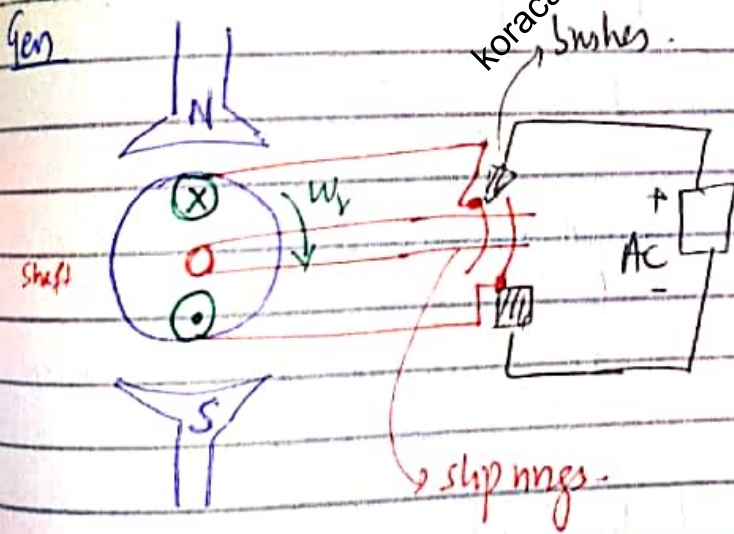 Gen
koraca
brushes.
N
X
Wr
+
Shaft
AC
-
S
slip rings.